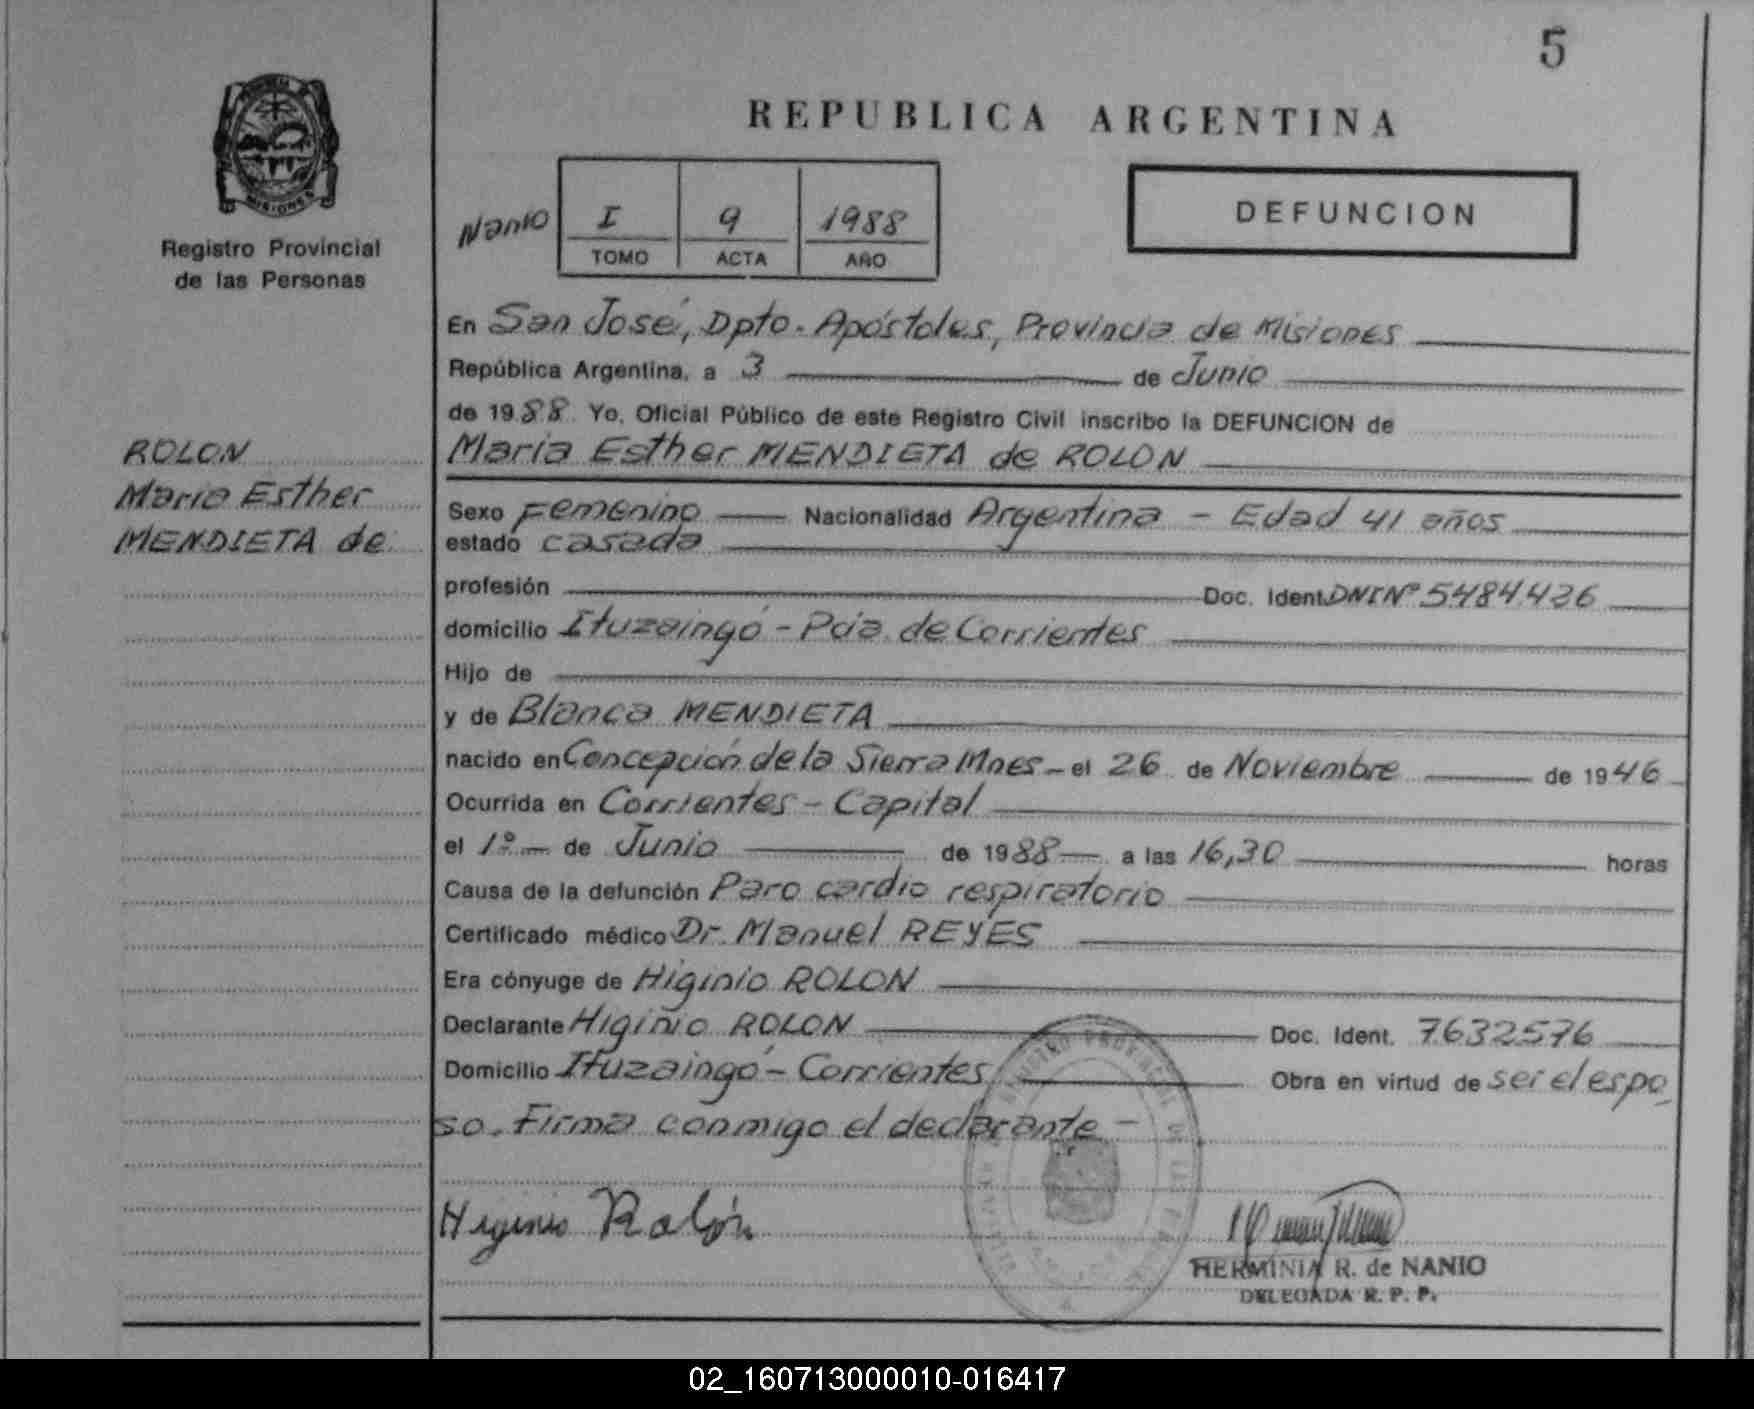 5
MISIONES
Registro Provincial
de las Personas
REPUBLICA ARGENTINA
Nanio
I 9 1988
TOMO ACTA AÑO
DEFUNCION
En San José, Dpto. Apóstoles, Provincia de Misiones
República Argentina, a 3 de Junio
de 1988 Yo, Oficial Público de este Registro Civil inscribo la DEFUNCION de
Maria Esther MENDIETA de ROLON
ROLON
Maria Esther
MENDIETA de
Sexo Femenino Nacionalidad Argentina - Edad 41 años
estado casada
profesión Doc. Ident. DNI Nº 5484426
domicilio Ituzaingó - Pcia. de Corrientes
Hijo de
y de Blanca MENDIETA
nacido en Concepción de la Sierra Mnes - el 26 de Noviembre de 1946
Ocurrida en Corrientes - Capital
el 1º de Junio de 1988 a las 16,30 horas
Causa de la defunción Paro cardio respiratorio
Certificado médico Dr. Manuel REYES
Era cónyuge de Higinio ROLON
Declarante Higinio ROLON Doc. Ident. 7632576
Domicilio Ituzaingó - Corrientes Obra en virtud de ser el espo
so. Firma conmigo el declarante -
Higinio Rolón
HERMINIA R. de NANIO
DELEGADA R. P. P.
02_160713000010-016417